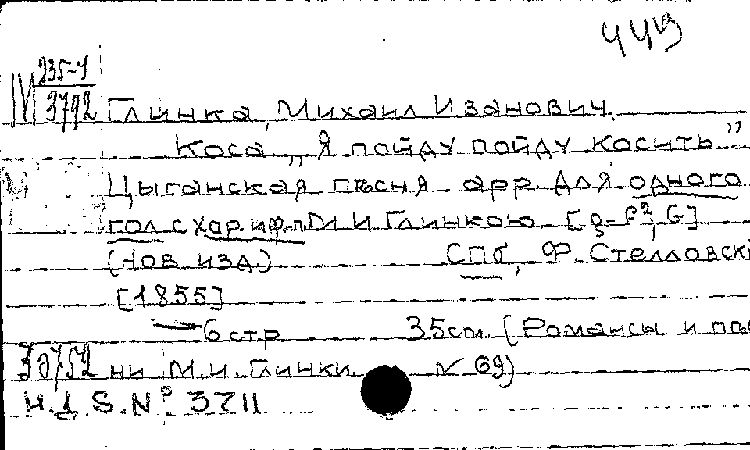 449
M 235-4
3792
Глинка, Михаил Иванович.
Коса „Я пойду пойду косить"
Цыганская пѣсня арр для одного
гол с хор. и ф.п М И Глинкою [g-f², G]
(нов изд.) СПб, Ф. Стелловскі
[1855]
6 стр 35 см. (Романсы и пѣс
30752 ни М. И. Глинки № 69)
И. 1. S. Nº 3711